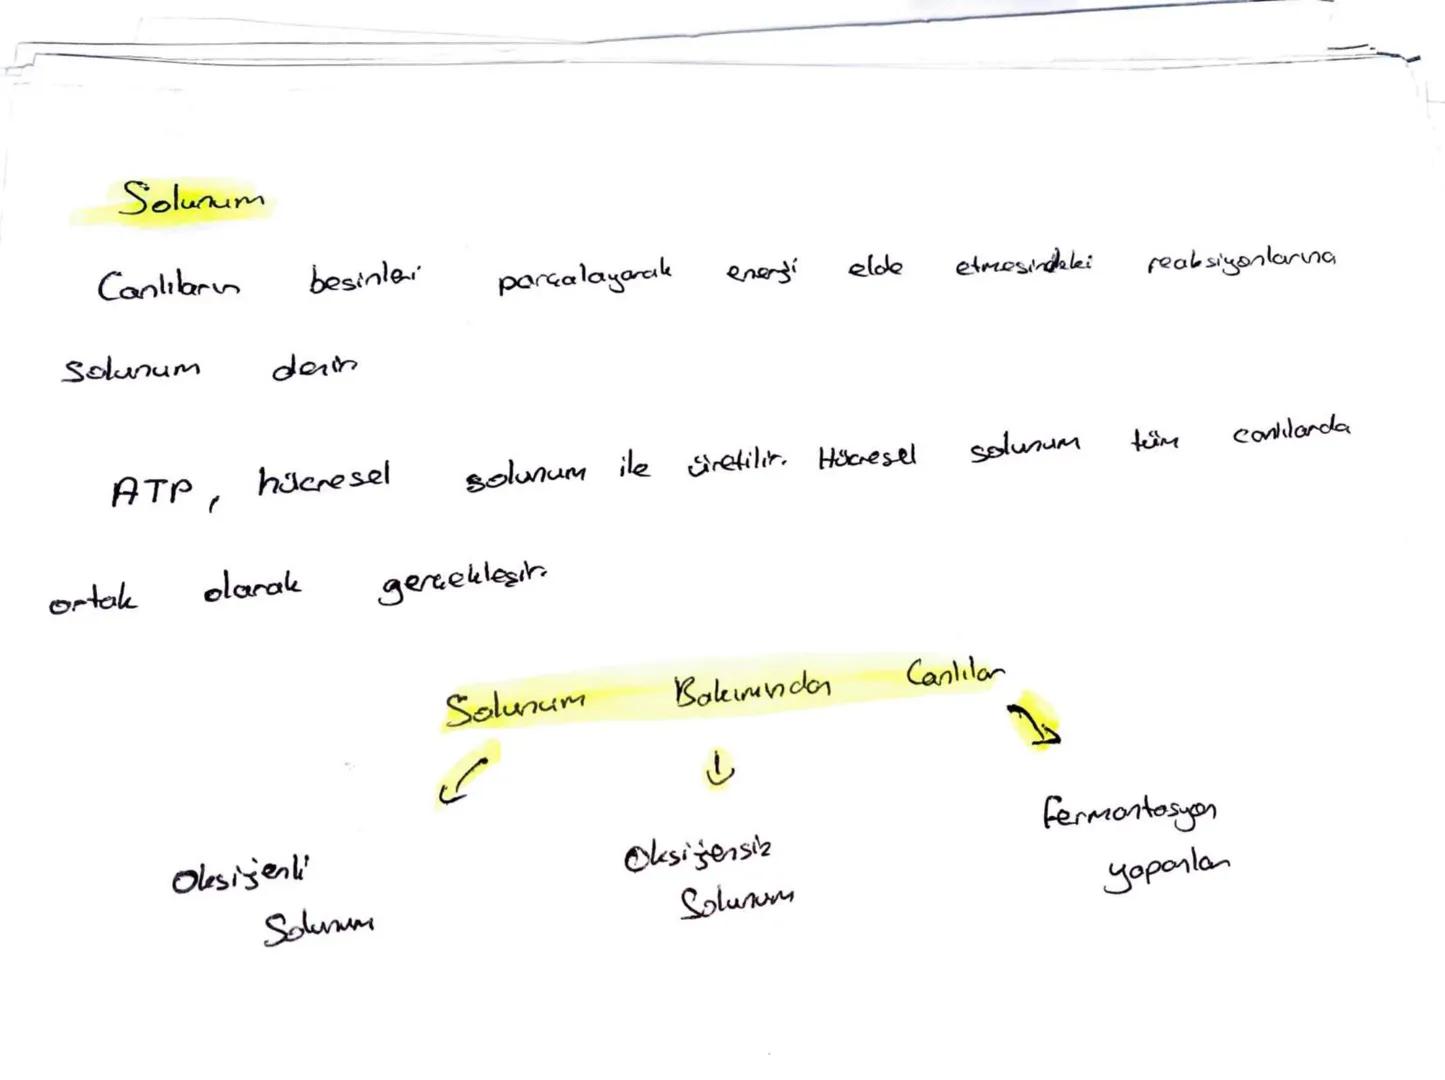 Solunum
Canlıların besinleri parçalayarak enerji elde etmesindeki reaksiyonlarına
solunum denir
ATP, hücresel solunum ile üretilir. Hücresel solunum tüm canlılarda
ortak olarak gerçekleşir.
Solunum Bakımından Canlılar
Oksijenli Solunum
Oksijensiz Solunum
Fermantasyon yapanlar